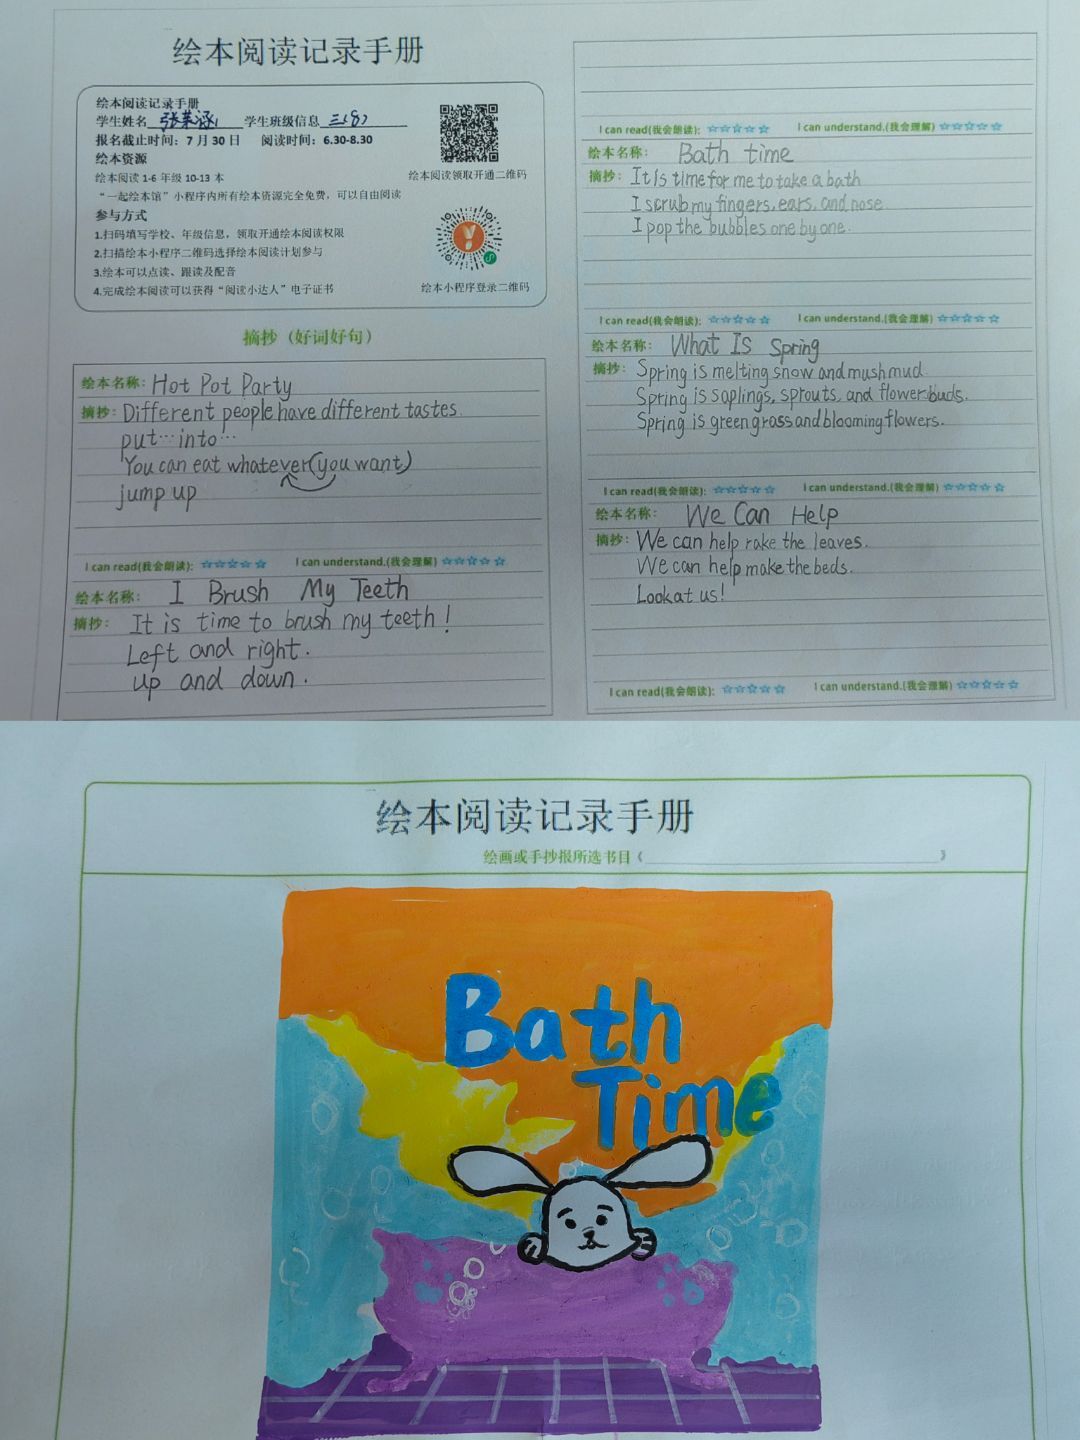 绘本阅读记录手册
绘本阅读记录手册
学生姓名 张莱涵 学生班级信息 三(8)
报名截止时间：7月30日 阅读时间：6.30-8.30
绘本资源
绘本阅读 1-6 年级 10-13 本
“一起绘本馆”小程序内所有绘本资源完全免费，可以自由阅读
参与方式
1.扫码填写学校、年级信息，领取开通绘本阅读权限
2.扫描绘本小程序二维码选择绘本阅读计划参与
3.绘本可以点读、跟读及配音
4.完成绘本阅读可以获得“阅读小达人”电子证书
绘本阅读领取开通二维码
绘本小程序登录二维码
摘抄（好词好句）
绘本名称: Hot Pot Party
摘抄: Different people have different tastes.
put…into…
You can eat whatever(you want)
jump up
I can read(我会朗读): ☆☆☆☆☆ I can understand.(我会理解) ☆☆☆☆☆
绘本名称: I Brush My Teeth
摘抄: It is time to brush my teeth!
Left and right.
up and down.
I can read(我会朗读): ☆☆☆☆☆ I can understand.(我会理解) ☆☆☆☆☆
绘本名称: Bath time
摘抄: It is time for me to take a bath
I scrub my fingers, ears, and nose.
I pop the bubbles one by one.
I can read(我会朗读): ☆☆☆☆☆ I can understand.(我会理解) ☆☆☆☆☆
绘本名称: What Is Spring
摘抄: Spring is melting snow and mush mud.
Spring is saplings, sprouts, and flower buds.
Spring is green grass and blooming flowers.
I can read(我会朗读): ☆☆☆☆☆ I can understand.(我会理解) ☆☆☆☆☆
绘本名称: We Can Help
摘抄: We can help rake the leaves.
We can help make the beds.
Look at us!
I can read(我会朗读): ☆☆☆☆☆ I can understand.(我会理解) ☆☆☆☆☆
绘本阅读记录手册
绘画或手抄报所选书目《 》
Bath
Time